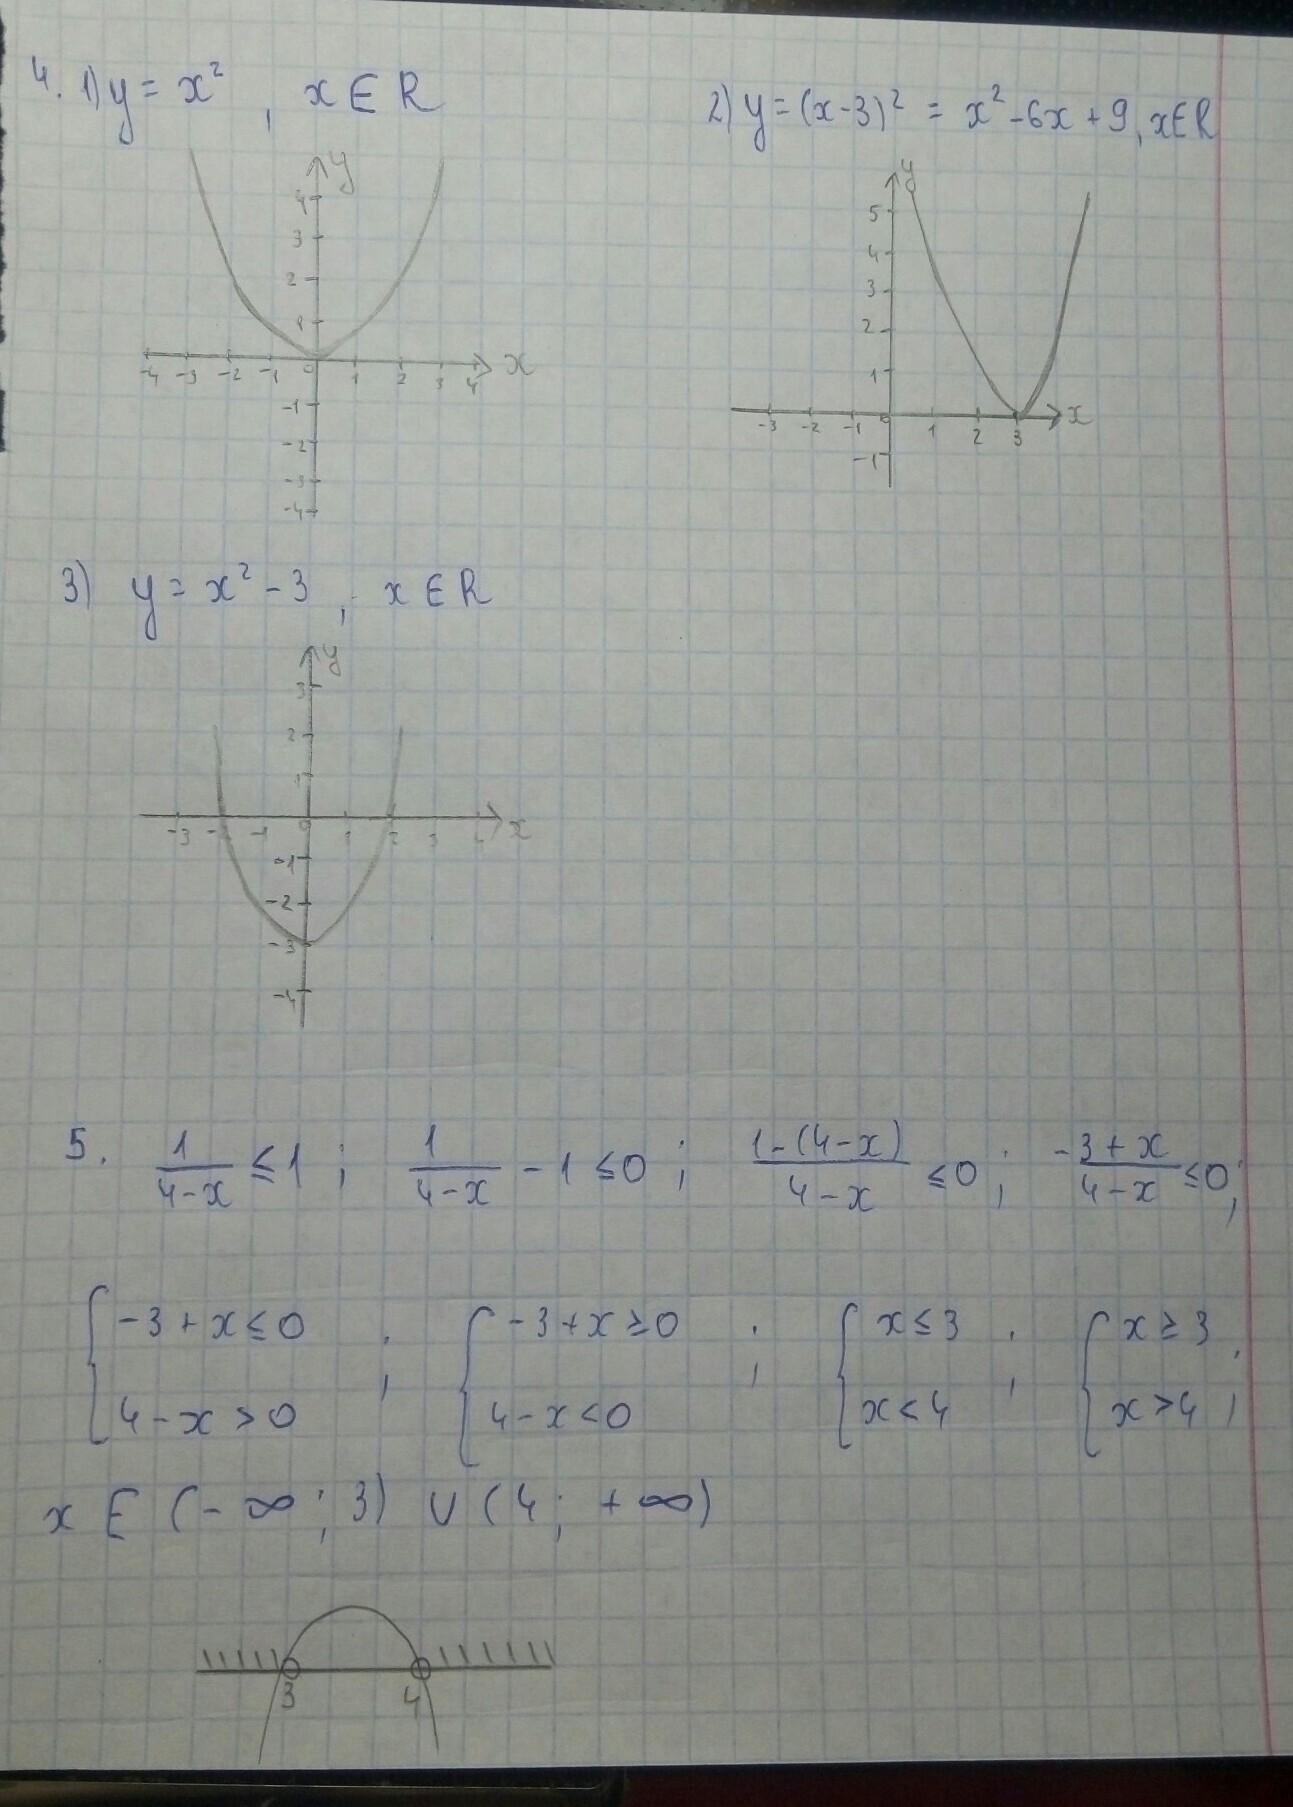 4. 1) y = x² , x ∈ R
y
4
3
2
1
-4 -3 -2 -1 0 1 2 3 4 x
-1
-2
-3
-4
2) y = (x-3)² = x² - 6x + 9, x∈R
y
5
4
3
2
1
-3 -2 -1 0 1 2 3 x
-1
3) y = x² - 3 , x ∈ R
y
3
2
1
-3 -1 0 1 2 3 x
-1
-2
-3
-4
5. 1/(4-x) ≤ 1 ; 1/(4-x) - 1 ≤ 0 ; (1-(4-x))/(4-x) ≤ 0 ; (-3+x)/(4-x) ≤ 0 ;
{ -3 + x ≤ 0 ; { -3 + x ≥ 0 ; { x ≤ 3 ; { x ≥ 3 ;
4 - x > 0 4 - x < 0 x < 4 x > 4
x ∈ (-∞ ; 3) ∪ (4 ; +∞)
3 4